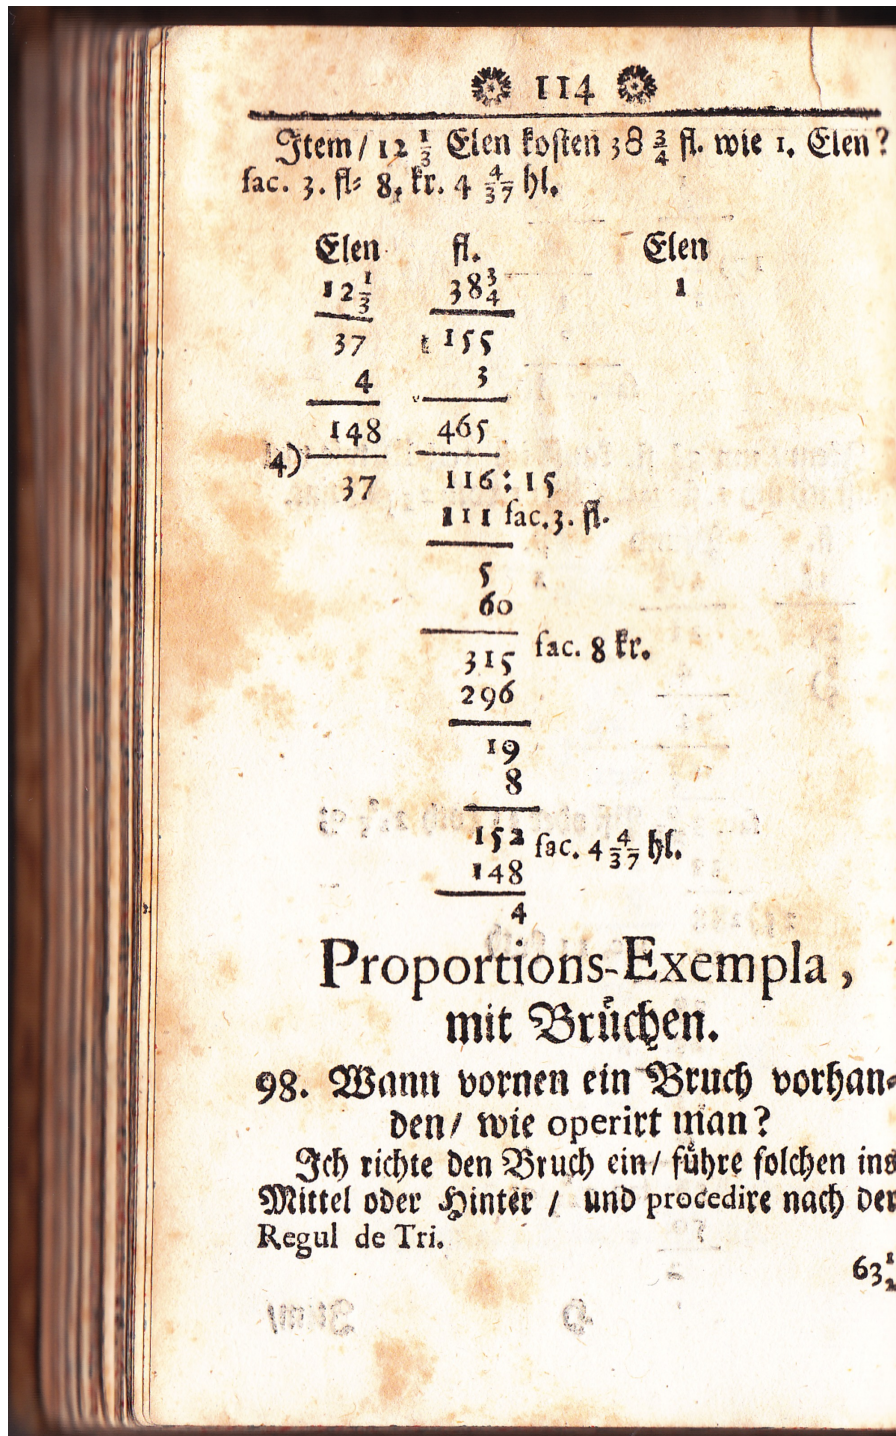 114
Item/ 12 1/3 Elen kosten 38 3/4 fl. wie 1. Elen?
fac. 3. fl= 8. kr. 4 4/37 hl.
Elen fl. Elen
12 1/3 38 3/4 1
37 155
4 3
148 465
4)
37 116:15
111 fac. 3. fl.
5
60
315 fac. 8 kr.
296
19
8
152 fac. 4 4/37 hl.
148
4
Proportions-Exempla,
mit Brüchen.
98. Wann vornen ein Bruch vorhan-
den/ wie operirt man?
Ich richte den Bruch ein/ führe solchen ins
Mittel oder Hinter / und procedire nach der
Regul de Tri.
63 1/2